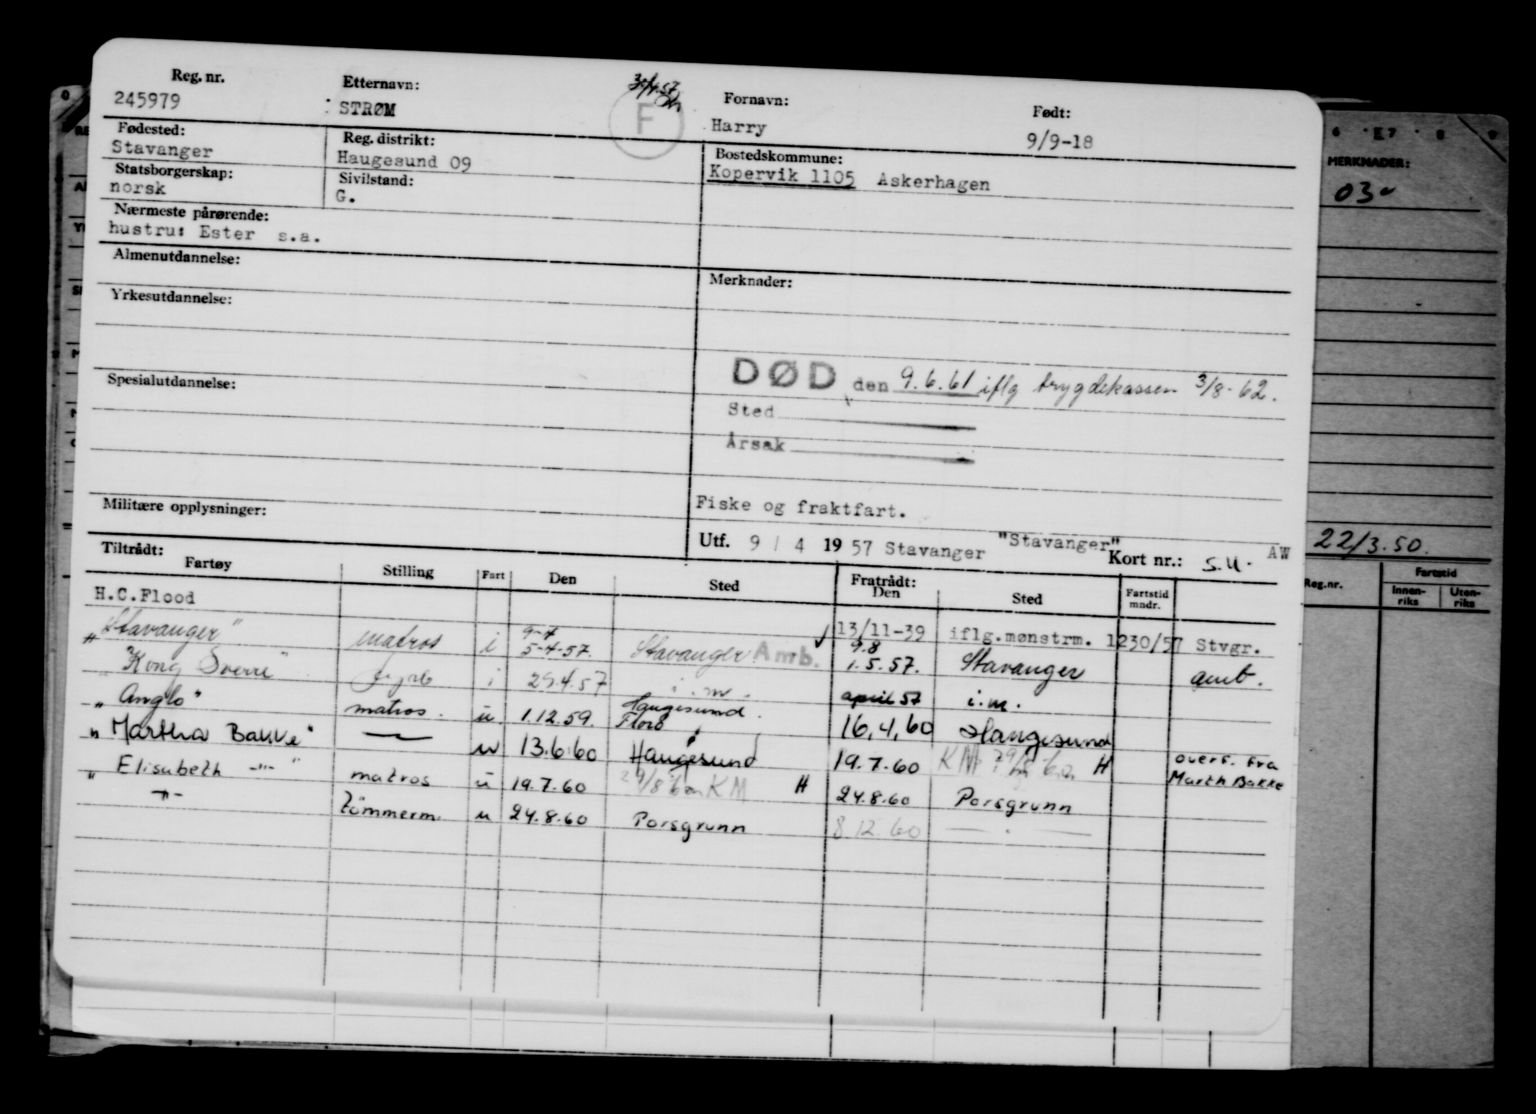 Reg. nr. Etternavn: Fornavn: Født:
245979 STRØM Harry 9/9-18
F
Fødested: Reg. distrikt: Bostedskommune:
Stavanger Haugesund 09 Kopervik 1105 Askerhagen
Statsborgerskap: Sivilstand:
norsk G.
Nærmeste pårørende:
hustru: Ester s.a.
Almenutdannelse: Merknader:
Yrkesutdannelse:
DØD den 9.6.61 iflg trygdekassen 3/8-62.
Spesialutdannelse:
Sted
Årsak
Fiske og fraktfart.
Militære opplysninger:
Utf. 9 / 4 1957 Stavanger "Stavanger" Kort nr.: S.U. AW
Tiltrådt: Fratrådt:
Fartøy Stilling Fart Den Sted Den Sted Fartstid mndr.
H.C.Flood 13/11-39 iflg.mønstrm. 1230/57 Stvgr.
"Stavanger" matros i 9-4 5-4-57. Stavanger Amb. 9.8 1.5.57. Stavanger amb.
"Kong Sverre" i 29.4.57 i.m. april 57 i.m.
"Anglo" matros. u 1.12.59. Haugesund. Florø 16,4,60 Haugesund
" Martha Bakke" u 13.6.60 Haugesund 19.7.60 KM 29/8 60 H overf. fra
" Elisabeth -"- " matros u 19.7.60 29/8 60 KM H 24.8.60 Porsgrunn Marth Bakke
-"- tömmerm. u 24.8.60 Porsgrunn 8.12.60
6 7 8 9
MERKNADER:
03
22/3.50.
Reg.nr. Fartstid
Innenriks Utenriks